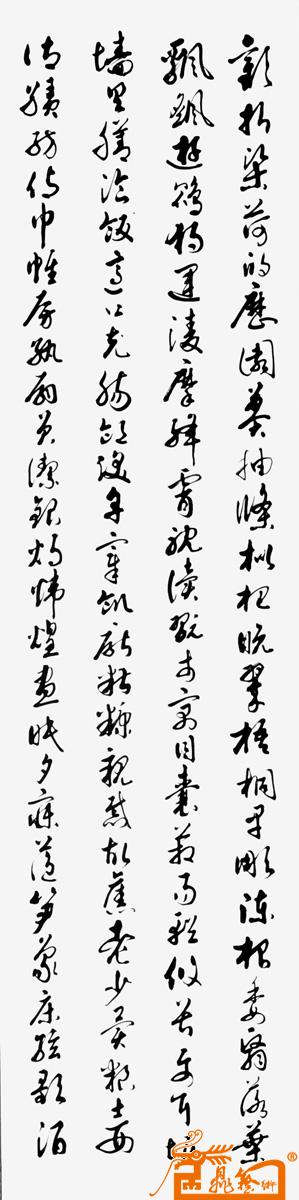 歡招渠荷的歷園莽抽條枇杷晚翠梧桐早彫陳根委翳落葉
飄颻遊鵾獨運淩摩絳霄耽讀翫市寓目囊箱易輶攸畏屬耳垣
墻具膳飡飯適口充腸飽飫烹宰飢厭糟糠親戚故舊老少異糧妾
御績紡侍巾帷房紈扇員潔銀燭煒煌晝眠夕寐藍筍象床弦歌酒